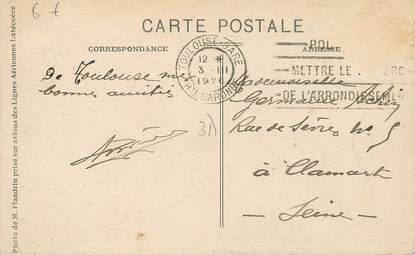 6 €
CARTE POSTALE
CORRESPONDANCE
ADRESSE
TOULOUSE-GARE
12 *
3 - III
Hte GARONNE
METTRE LE
DE L'ARRONDISSEM
De Toulouse mes
bonnes amitiés
Mademoiselle
Germaine
Rue de Sèvres No 5
à Clamart
- Seine -
Photo de M. Flandrin prise sur avions des Lignes Aériennes Latécoère